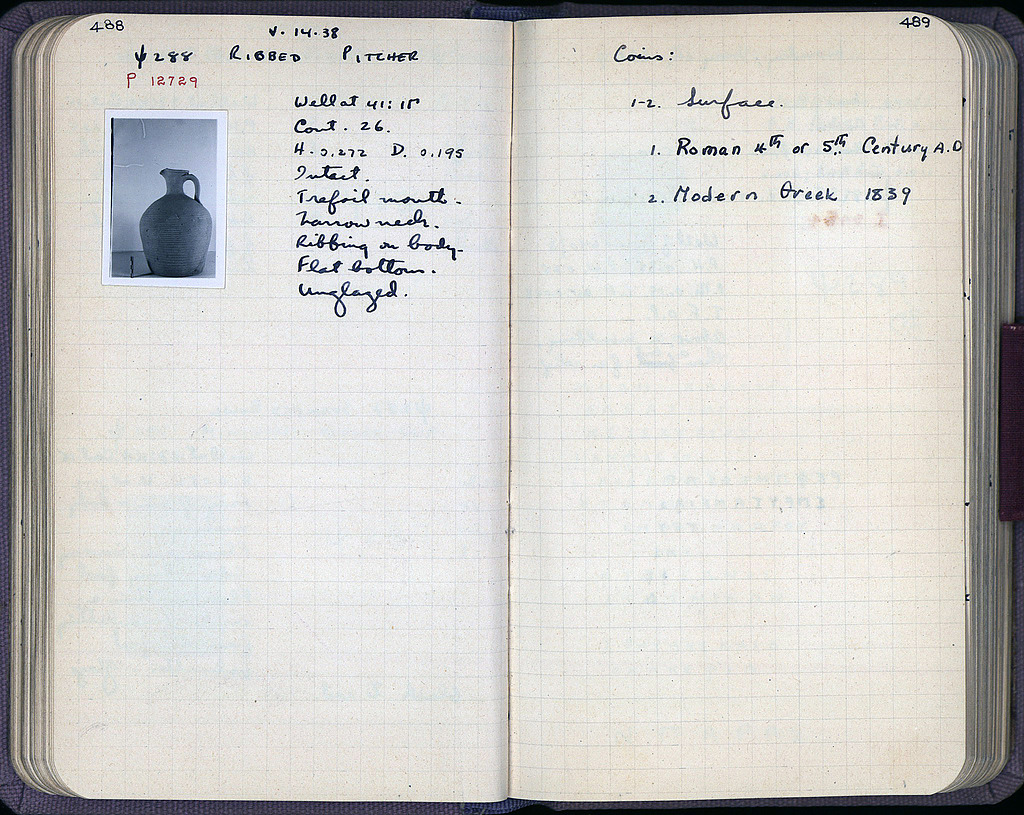 488
V. 14.38
Ψ288 RIBBED PITCHER
P 12729
Well at 41: ΙΕ
Cont. 26.
H. 0.272 D. 0.195
Intact.
Trefoil mouth.
Narrow neck.
Ribbing on body.
Flat bottom.
Unglazed.
489
Coins:
1-2. Surface.
1. Roman 4th or 5th Century A.D
2. Modern Greek 1839